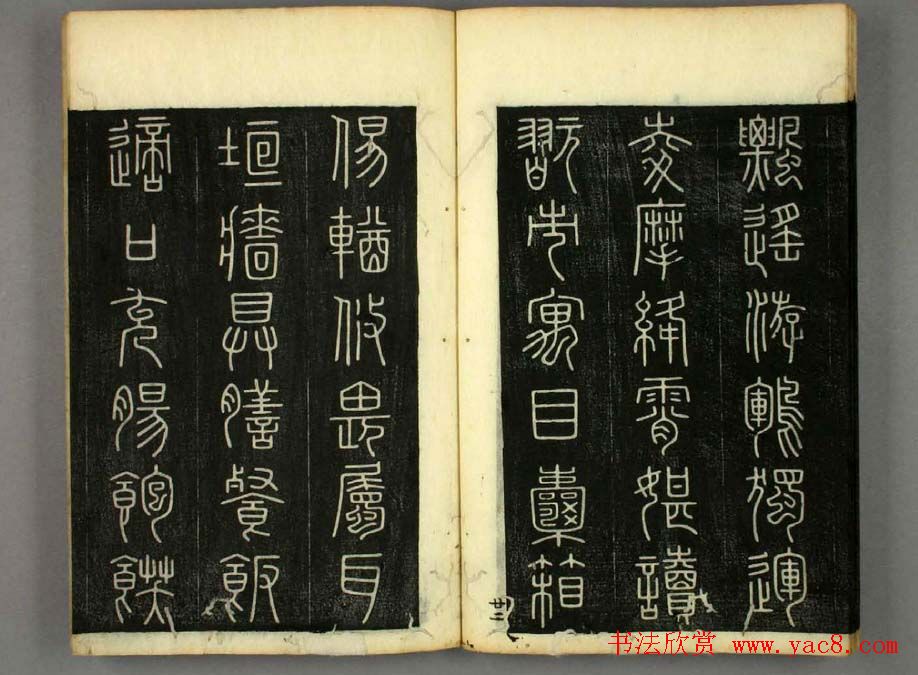 飄遙游鶤獨運
夌摩絳霄媅讀
翫市寓目囊箱
㑥輶攸畏屬耳
垣牆具膳餐飯
適口充腸飽飫
廿二
书法欣赏 www.yac8.com